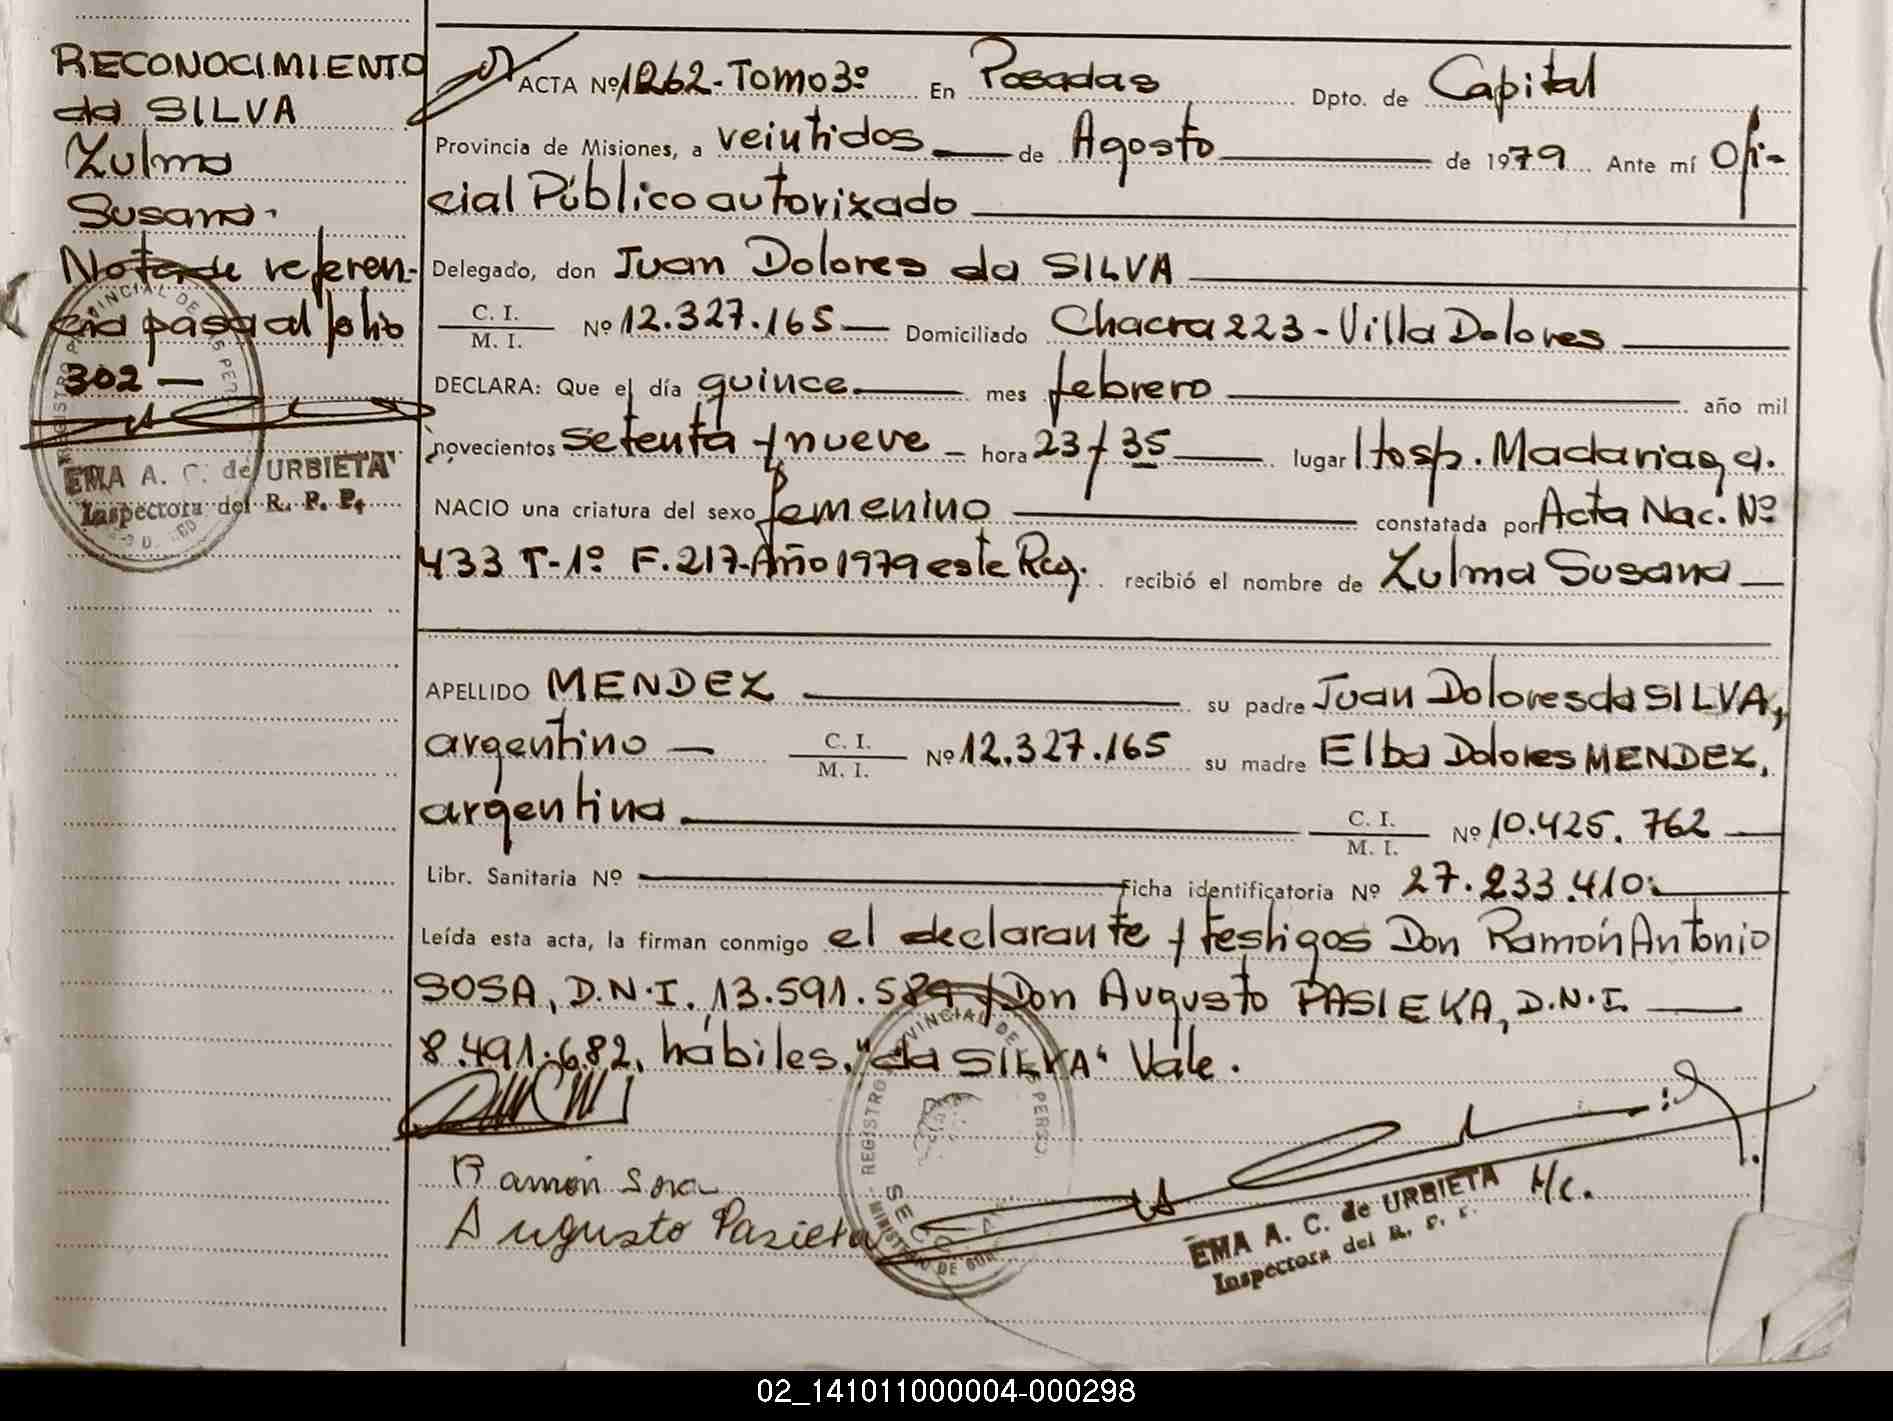 RECONOCIMIENTO
da SILVA
Zulma
Susana.
Nota de referen-
cia pasa al folio
302 —
EMA A. C. de URBIETA
Inspectora del R. P. P.
ACTA Nº 1262-Tomo 3º En Posadas Dpto. de Capital
Provincia de Misiones, a veintidos de Agosto de 1979 Ante mí Ofi-
cial Público autorizado
Delegado, don Juan Dolores da SILVA
C. I.
M. I. Nº 12.327.165 — Domiciliado Chacra 223 - Villa Dolores
DECLARA: Que el día quince mes febrero año mil
novecientos setenta y nueve — hora 23 y 35 lugar Hosp. Madariaga.
NACIO una criatura del sexo femenino constatada por Acta Nac. Nº
433 T-1º F. 217-Año 1979 este Reg. recibió el nombre de Zulma Susana —
APELLIDO MENDEZ su padre Juan Dolores da SILVA,
argentino — C. I.
M. I. Nº 12.327.165 su madre Elba Dolores MENDEZ,
argentina C. I.
M. I. Nº 10.425.762 —
Libr. Sanitaria Nº Ficha identificatoria Nº 27.233.410.
Leída esta acta, la firman conmigo el declarante y testigos Don Ramón Antonio
SOSA, D.N.I. 13.591.589 y Don Augusto PASIEKA, D.N.I. —
8.491.682, hábiles. "da SILVA" Vale.
Ramón Sosa
Augusto Pasieka
EMA A. C. de URBIETA H/c.
Inspectora del R. P. P.
02_141011000004-000298